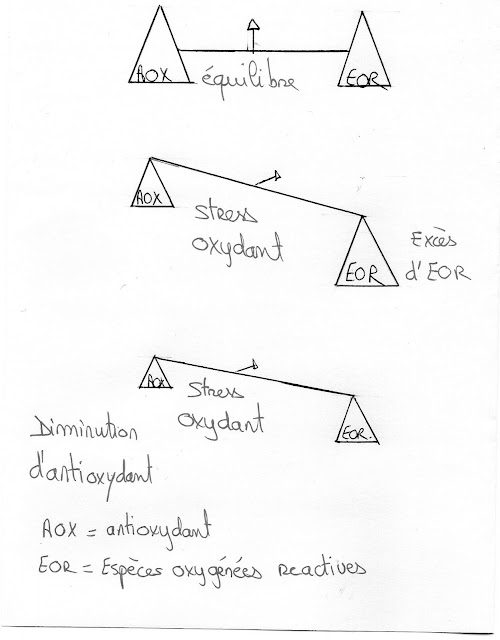 AOX équilibre EOR
AOX
stress
oxydant
EOR
Excès
d'EOR
AOX
Stress
oxydant
EOR.
Diminution
d'antioxydant
AOX = antioxydant
EOR = Espèces oxygénées reactives